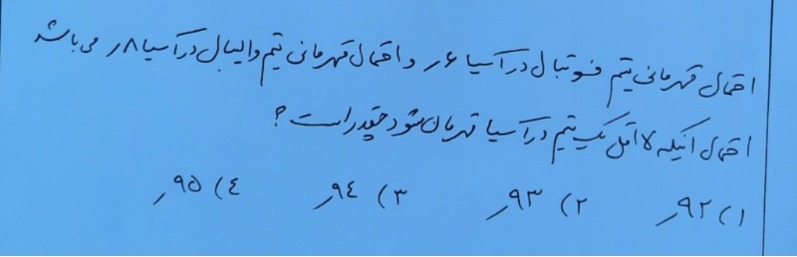 احتمال قهرمانی تیم فوتبال در آسیا ۶ر و احتمال قهرمانی تیم والیبال در آسیا ۸ر می باشد
احتمال اینکه لااقل یک تیم در آسیا قهرمان شود چقدر است ؟
۱) ۹۲ر ۲) ۹۳ر ۳) ۹٤ر ٤) ۹۵ر